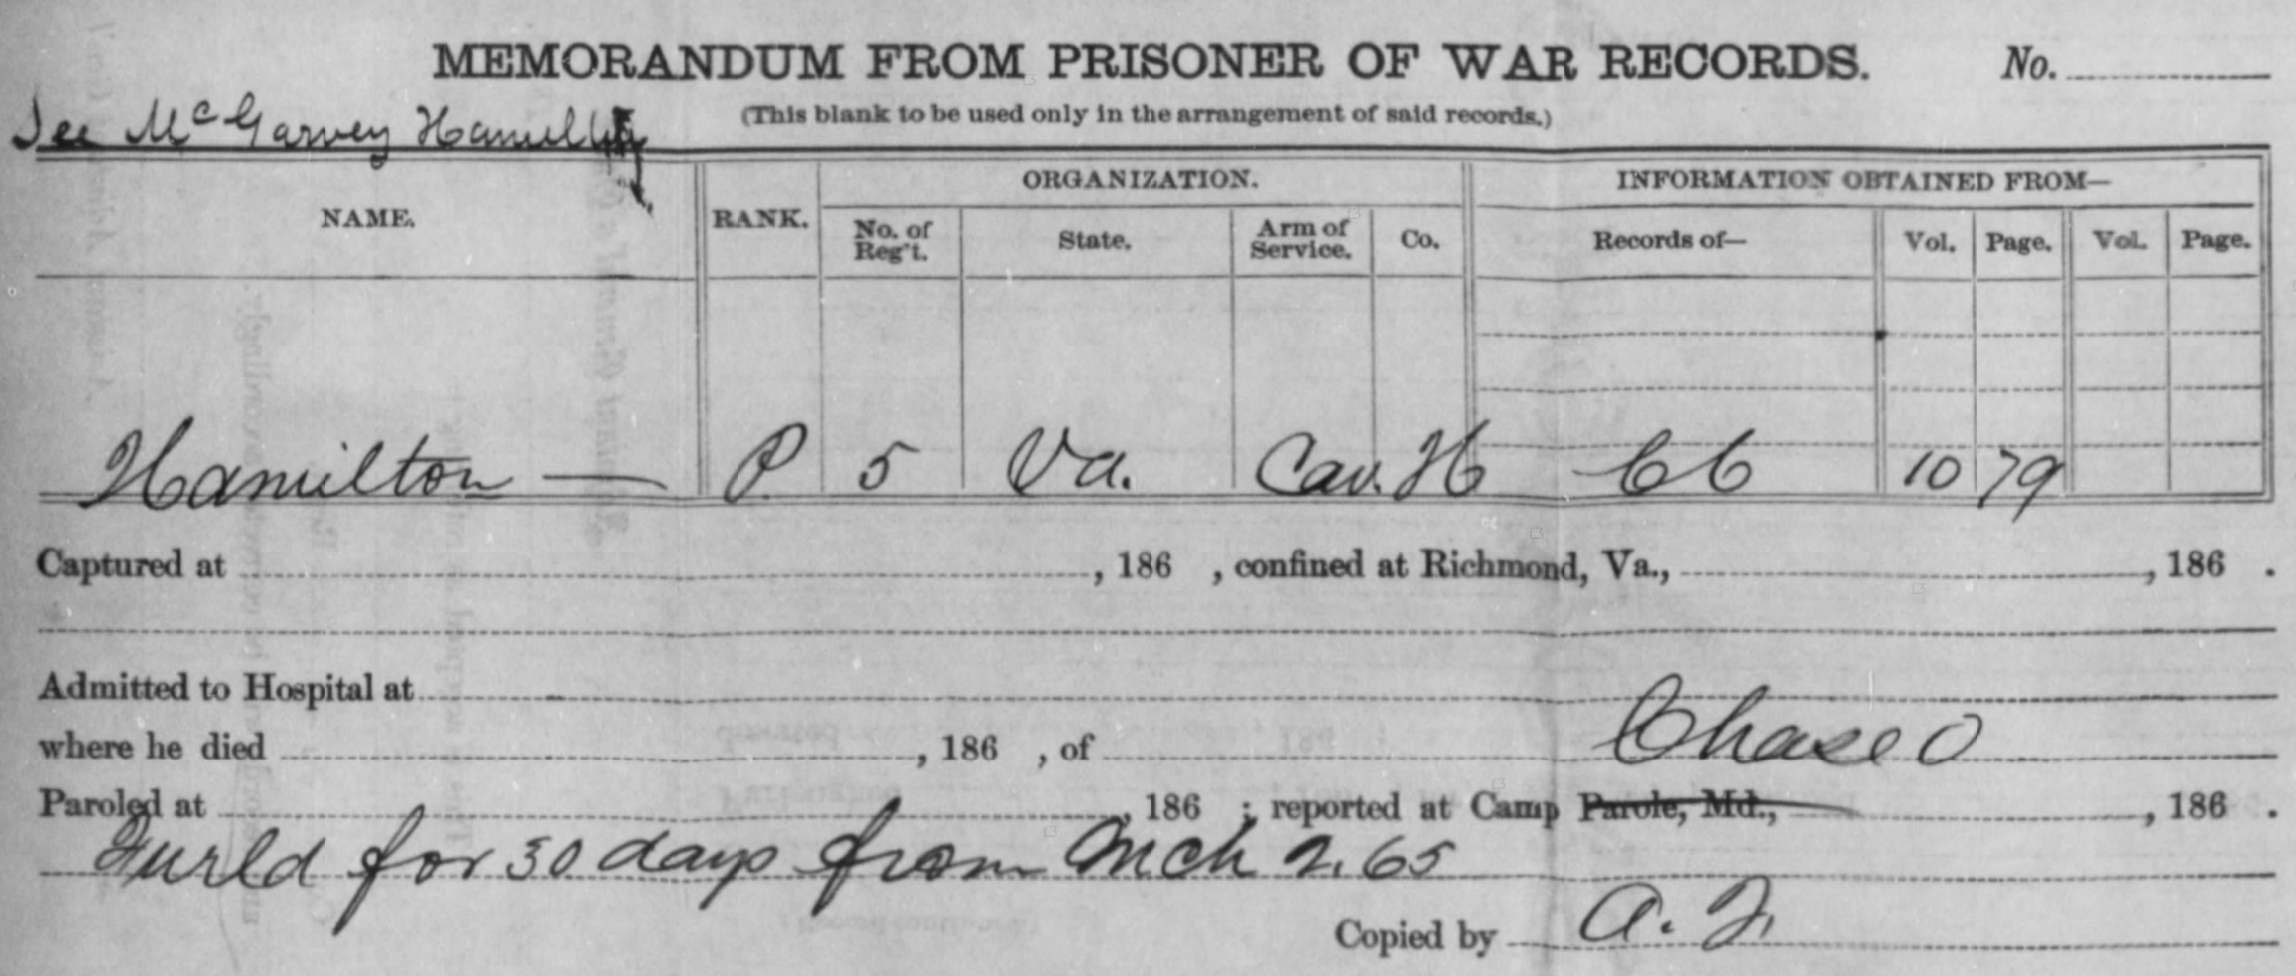 MEMORANDUM FROM PRISONER OF WAR RECORDS. No.
(This blank to be used only in the arrangement of said records.)
See McGarvey Hamilton
NAME. RANK. ORGANIZATION. INFORMATION OBTAINED FROM—
No. of Reg't. State. Arm of Service. Co. Records of— Vol. Page. Vol. Page.
Hamilton — P. 5 Va. Cav. H CC 10 79
Captured at , 186 , confined at Richmond, Va., , 186 .
Admitted to Hospital at
where he died , 186 , of
Chase O
Paroled at , 186 ; reported at Camp Parole, Md., , 186 .
Furld for 30 days from Mch 2. 65
Copied by A. F.